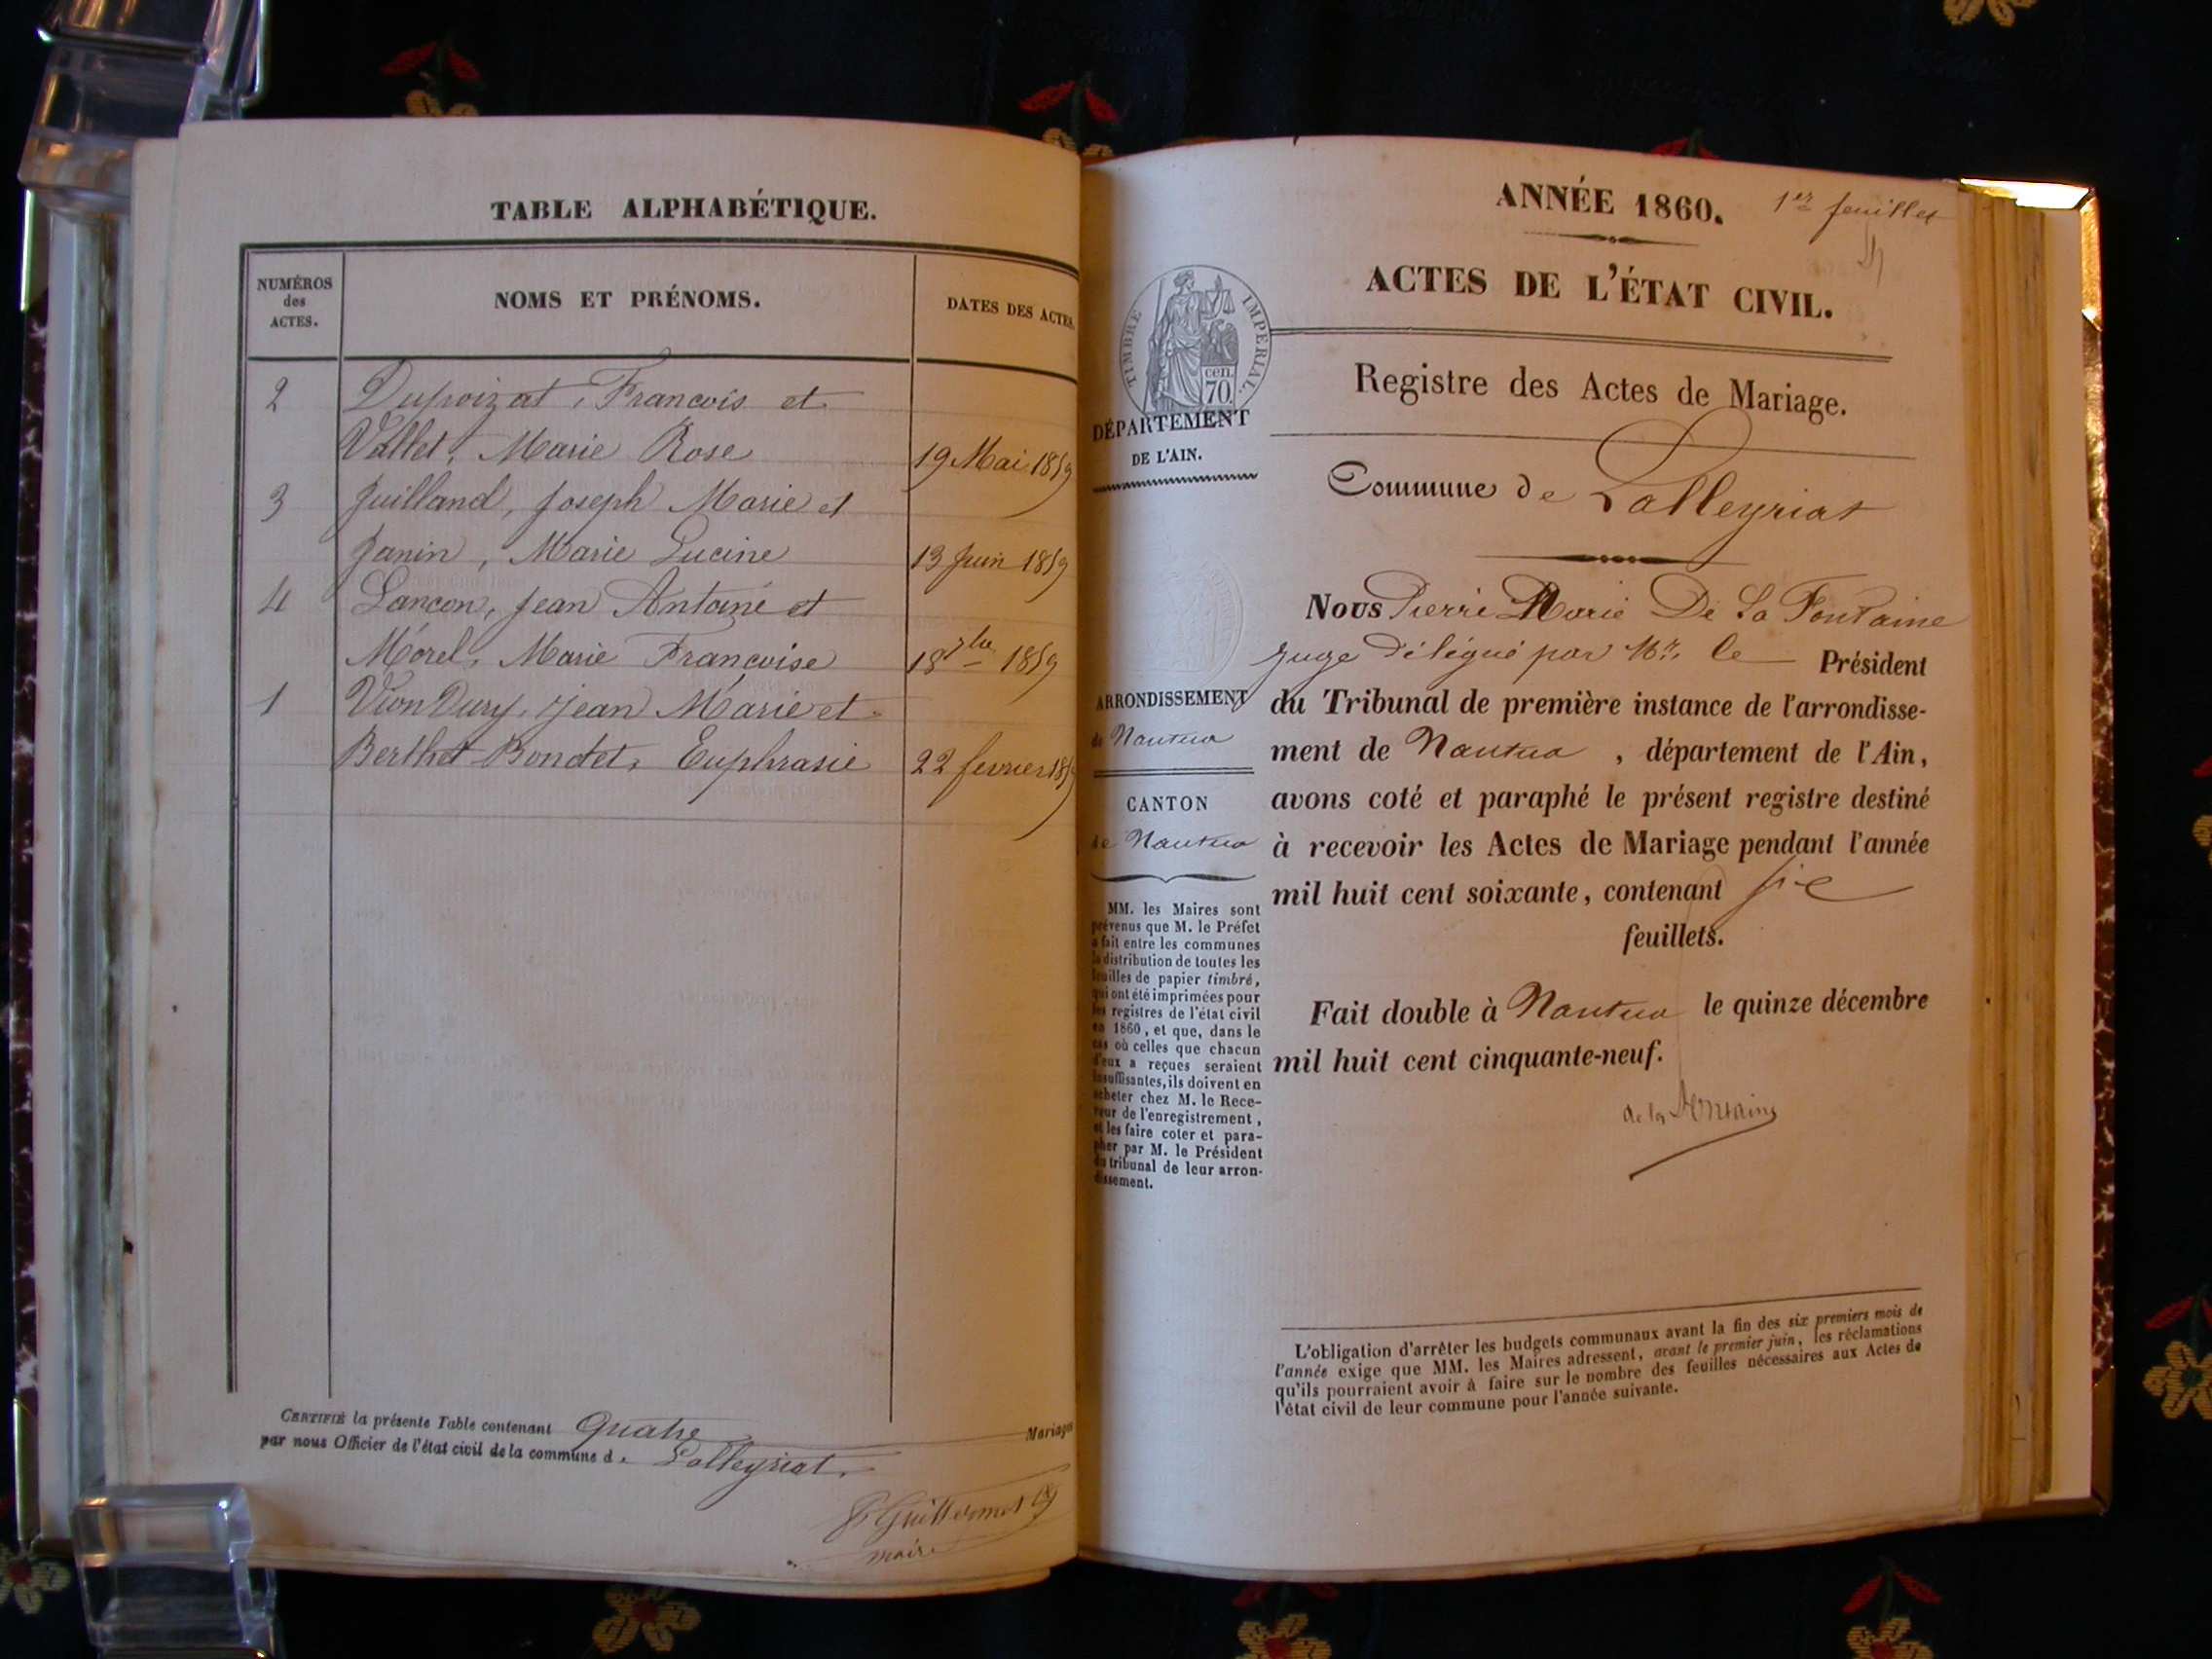 TABLE ALPHABÉTIQUE.
NUMÉROS
des
ACTES.
NOMS ET PRÉNOMS.
DATES DES ACTES.
2 Dupoizat, Francois et
Vallet, Marie Rose 19 Mai 1859
3 Juilland, Joseph Marie et
Janin, Marie Lucine 13 Juin 1859
4 Lancon, Jean Antoine et
Morel, Marie Francoise 18 7bre 1859
1 Vion Dury, Jean Marie et
Berthet Bondet, Euphrasie 22 fevrier 1859
CERTIFIÉ la présente Table contenant Quatre Mariages
par nous Officier de l'état civil de la commune d. Lalleyriat.
Guillermet
maire
ANNÉE 1860.
1er feuillet
ACTES DE L'ÉTAT CIVIL.
TIMBRE IMPERIAL.
cen.
70.
DÉPARTEMENT
DE L'AIN.
Registre des Actes de Mariage.
Commune de Lalleyriat
ARRONDISSEMENT
de Nantua
CANTON
de Nantua
MM. les Maires sont
prévenus que M. le Préfet
a fait entre les communes
la distribution de toutes les
feuilles de papier timbré,
qui ont été imprimées pour
les registres de l'état civil
en 1860, et que, dans le
cas où celles que chacun
d'eux a reçues seraient
insuffisantes, ils doivent en
acheter chez M. le Rece-
veur de l'enregistrement,
et les faire coter et para-
pher par M. le Président
du tribunal de leur arron-
dissement.
Nous Pierre Marie De La Fontaine
juge délégué par Mr. le Président
du Tribunal de première instance de l'arrondisse-
ment de Nantua , département de l'Ain,
avons coté et paraphé le présent registre destiné
à recevoir les Actes de Mariage pendant l'année
mil huit cent soixante, contenant
feuillets.
Fait double à Nantua le quinze décembre
mil huit cent cinquante-neuf.
de la Fontaine
L'obligation d'arrêter les budgets communaux avant la fin des six premiers mois de
l'année exige que MM. les Maires adressent, avant le premier juin, les réclamations
qu'ils pourraient avoir à faire sur le nombre des feuilles nécessaires aux Actes de
l'état civil de leur commune pour l'année suivante.